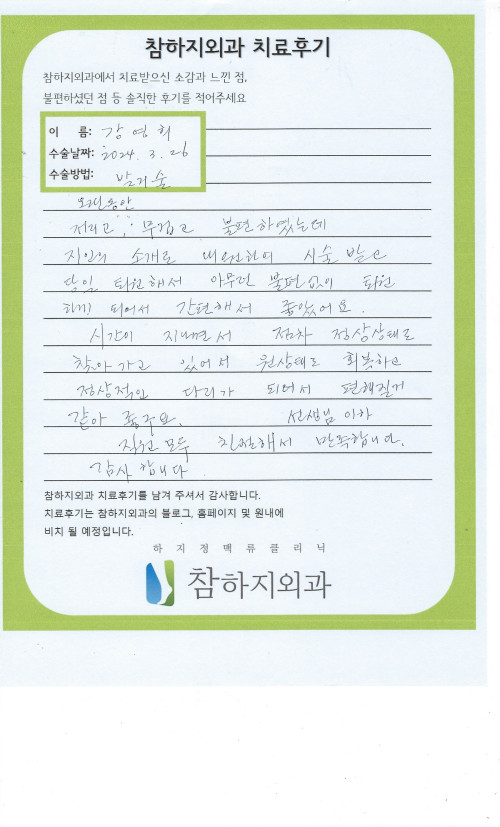 참하지외과 치료후기
참하지외과에서 치료받으신 소감과 느낀 점,
불편하셨던 점 등 솔직한 후기를 적어주세요
이 름: 강영희
수술날짜: 2024. 3. 26
수술방법: 발거술
오랜동안
저리고, 무겁고 불편하였는데
지인의 소개로 내원하여 시술 받고
당일 퇴원해서 아무런 불편없이 퇴원
하게 되어서 간편해서 좋았어요.
시간이 지나면서 점차 정상상태로
찾아가고 있어서 원상태로 회복하고
정상적인 다리가 되어서 편해질거
같아 좋구요. 선생님 이하
직원 모두 친절해서 만족합니다.
감사합니다
참하지외과 치료후기를 남겨 주셔서 감사합니다.
치료후기는 참하지외과의 블로그, 홈페이지 및 원내에
비치 될 예정입니다.
하지정맥류클리닉
참하지외과